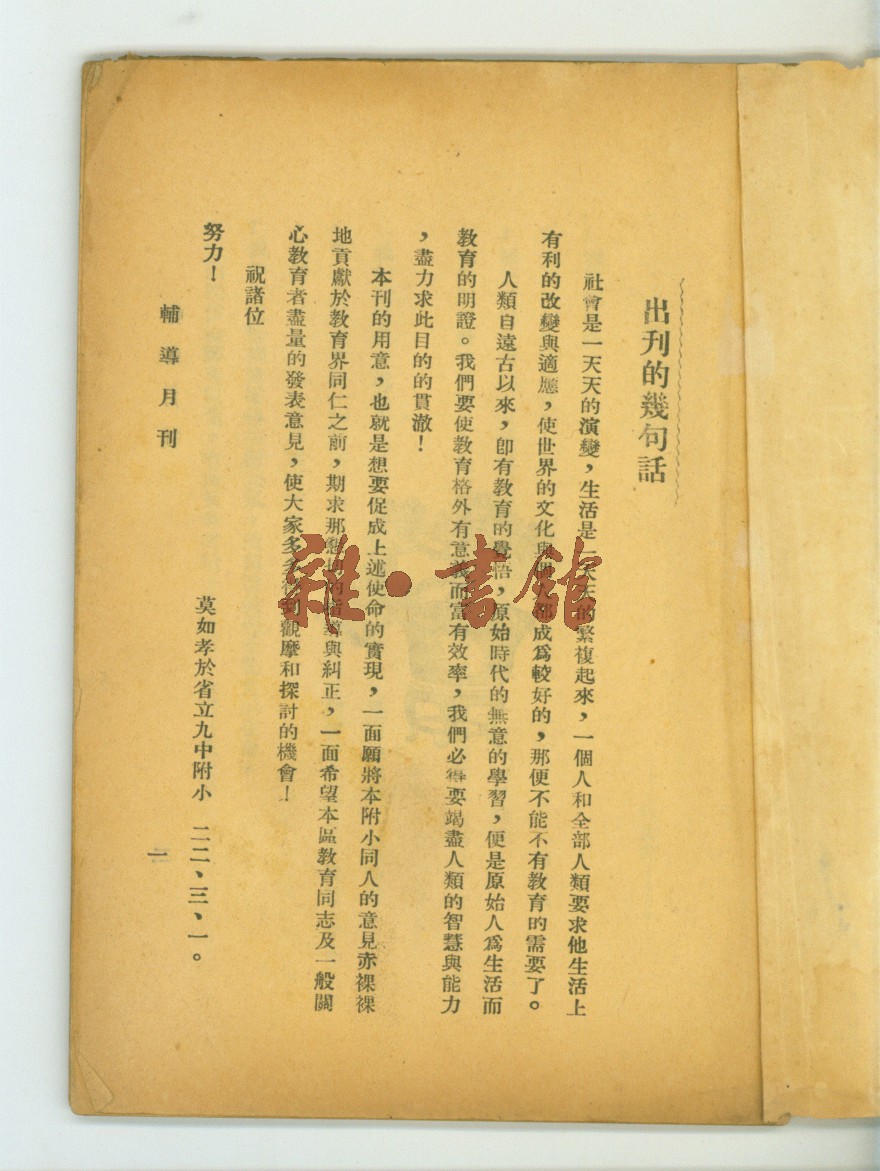 出刊的幾句話
社會是一天天的演變，生活是一天天的繁複起來，一個人和全部人類要求他生活上
有利的改變與適應，使世界的文化與 都成爲較好的，那便不能不有教育的需要了。
人類自遠古以來，卽有教育的覺悟，原始時代的無意的學習，便是原始人爲生活而
教育的明證。我們要使教育格外有意義而富有效率，我們必得要竭盡人類的智慧與能力
，盡力求此目的的貫澈！
本刊的用意，也就是想要促成上述使命的實現，一面願將本附小同人的意見赤裸裸
地貢獻於教育界同仁之前，期求那 的指導與糾正，一面希望本區教育同志及一般關
心教育者盡量的發表意見，使大家多多得到觀摩和探討的機會！
祝諸位
努力！
莫如孝於省立九中附小 二二、三、一。
輔導月刊
一
雜·書館